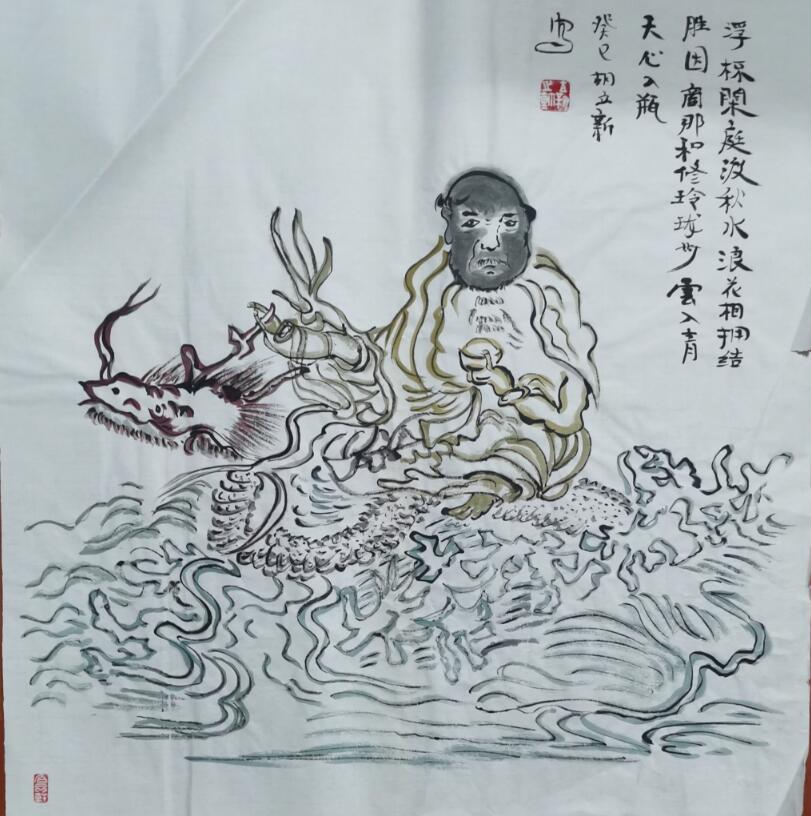 浮杯閑庭汲秋水浪花相拥结
胜因商那和修玲珑步雲入青
天心入瓶
癸巳胡立新
写